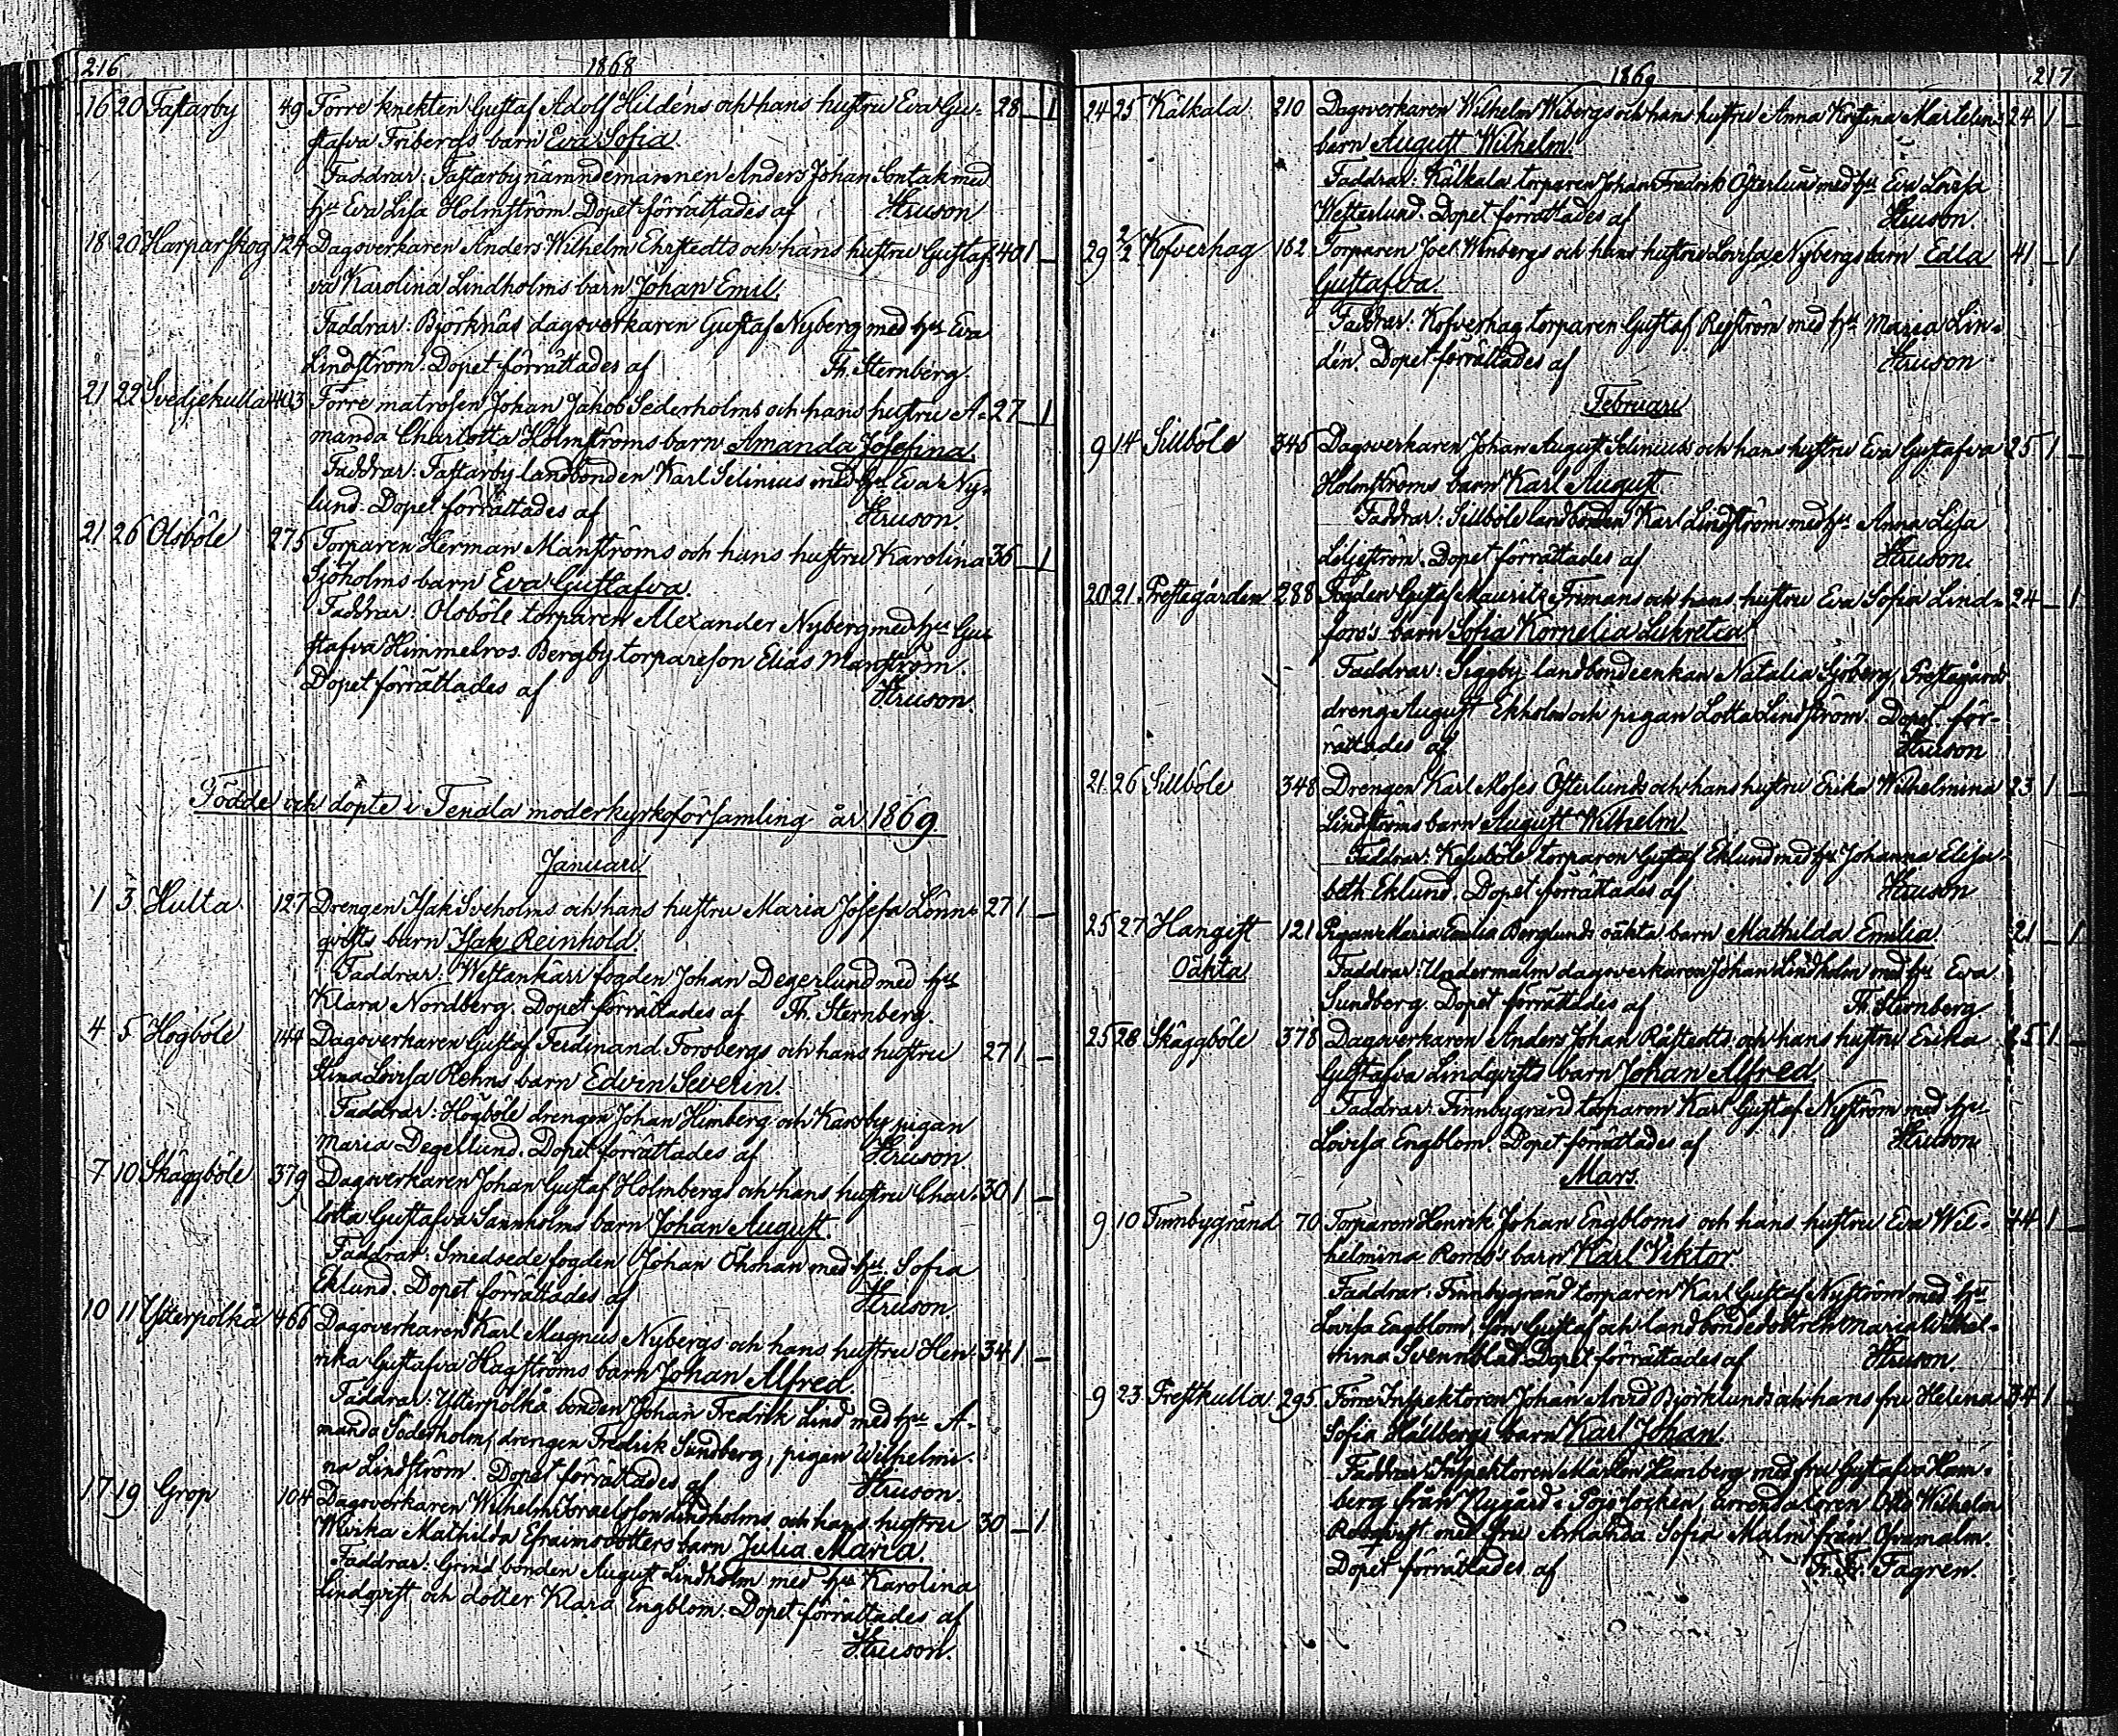 216
1868
16 20 Fastarby 49 Förre knekten Gustaf Adolf Hildéns och hans hustru Eva Gu- 28 – 1
stafva Fribergs barn Eva Sofia.
Faddrar: Fastarby nämndemannen Anders Johan Sontak med
hu Eva Lisa Holmström. Dopet förrättades af Hruson
18 20 Harparskog 124 Dagsverkaren Anders Wilhelm Ehrstedts och hans hustru Gustaf- 40 1 –
va Karolina Lindholms barn Johan Emil.
Faddrar: Björknäs dagsverkaren Gustaf Nyberg med hu Eva
Lindström. Dopet förrättades af Th. Sternberg.
21 22 Svedjekulla 403 Förre matrosen Johan Jakob Sederholms och hans hustru A- 27 – 1
manda Charlotta Holmströms barn Amanda Josefina.
Faddrar: Fastarby landbonden Karl Selinius med hu Eva Ny-
lund. Dopet förrättades af Hruson.
21 26 Olsböle 275 Torparen Herman Manströms och hans hustru Karolina 36 – 1
Sjöholms barn Eva Gustafva.
Faddrar: Olsböle torparen Alexander Nyberg med hu Gu-
stafva Himmelros. Bergby torpareson Elias Manström.
Dopet förrättades af Hruson.
Födde och döpte i Tenala moderkyrkoförsamling år 1869
Januari.
1 3 Hulta 127 Drengen Isak Sveholms och hans hustru Maria Josefa Lönn- 27 1 –
qvists barn Isak Reinhold.
Faddrar: Westankärr fogden Johan Degerlund med hu
Klara Nordberg. Dopet förrättades af Th. Sternberg.
4 5 Högböle 144 Dagsverkaren Gustaf Ferdinand Forsbergs och hans hustru 27 1 –
Stina Lovisa Rehns barn Edvin Severin.
Faddrar: Högböle drengen Johan Himberg och Karsby pigan
Maria Degerlund. Dopet förrättades af Hruson
7 10 Skäggböle 379 Dagsverkaren Johan Gustaf Holmbergs och hans hustru Char- 30 1 –
lotta Gustafva Sannholms barn Johan August.
Faddrar: Smedsede fogden Johan Öhman med hu Sofia
Eklund. Dopet förrättades af Hruson.
10 11 Ysterpolkå 466 Dagsverkaren Karl Magnus Nybergs och hans hustru Hen- 34 1 –
rika Gustafva Hagströms barn Johan Alfred.
Faddrar: Ysterpolkå bonden Johan Fredrik Lind med hu A-
manda Söderholm, drengen Fredrik Sundberg, pigan Wilhelmi-
na Lindström. Dopet förrättades af Hruson.
17 19 Grop 104 Dagsverkaren Wilhelm Israelsson Lindholms och hans hustru 30 – 1
Mathilda Efraimsdotters barn Julia Maria.
Faddrar: Grind bonden August Lindholm med hu Karolina
Lindqvist och dotter Klara Engblom. Dopet förrättades af
Hruson.
1869
217
24 25 Kålkala 210 Dagsverkaren Wilhelm Wibergs och hans hustru Anna Kristina Martelins 24 1 –
barn August Wilhelm.
Faddrar: Kålkala torparen Johan Fredrik Österlund med hu Eva Lovisa
Westerlund. Dopet förrättades af Hruson.
29 2/2 Kofverhag 182 Torparen Joel Winbergs och hans hustru Lovisa Nybergs barn Edla 41 – 1
Gustafva.
Faddrar: Kofverhag torparen Gustaf Reström med hu Maria Lin-
dén. Dopet förrättades af Hruson
Februari
9 14 Sillböle 345 Dagsverkaren Johan August Selinius och hans hustru Eva Gustafva 25 1 –
Holmströms barn Karl August
Faddrar: Sillböle landbonden Karl Lindström med hu Anna Lisa
Liljeström. Dopet förrättades af Hruson.
20 21 Prestegården 288 Fogden Gustaf Maurits Frimans och hans hustru Eva Sofia Lind- 24 – 1
fors's barn Sofia Kornelia Lukretia.
Faddrar: Siggby landbondeenkan Natalia Sjöberg, Prestegårds
dreng August Ekholm och pigan Lotta Lindström. Dopet för-
rättades af Hruson
21 26 Sillböle 348 Drengen Karl Moses Österlunds och hans hustru Erika Wilhelmina 23 1 –
Lindströms barn August Wilhelm.
Faddrar: torparen Gustaf Eklund med hu Johanna Elisa-
beth Eklund. Dopet förrättades af Hruson
25 27 Hangist 121 Pigan Maria Emilia Berglunds oäkta barn Mathilda Emilia 21 – 1
Oäkta Faddrar: Undermalm dagsverkaren Johan Lindholm med hu Eva
Sundberg. Dopet förrättades af Th. Sternberg
25 28 Skäggböle 378 Dagsverkaren Anders Johan Råstedts och hans hustru Erika 25 1 –
Gustafva Lindqvists barn Johan Alfred
Faddrar: Finnbygränd torparen Karl Gustaf Nyström med hu
Lovisa Engblom. Dopet förrättades af Hruson
Mars.
9 10 Finnbygränd 70 Torparen Henrik Johan Engbloms och hans hustru Eva Wil- 44 1 –
helmina Roms's barn Karl Viktor
Faddrar: Finnbygränd torparen Karl Gustaf Nyström med hu
Lovisa Engblom, son Gustaf och landbondedottren Maria Wilhel-
mina Svennblad. Dopet förrättades af Hruson.
9 23 Prestkulla 295 Förre Inspektoren Johan Arvid Björklunds och hans fru Helena 34 1 –
Sofia Hällbergs barn Karl Johan.
Faddrar: Inspektoren Mårten Hamberg med fru Gustafva Ham-
berg från Nygård i Pojo socken, arrendatoren Otto Wilhelm
Rosqvist med fru Amanda Sofia Malm från
Dopet förrättades af Fr. Fr. Fagren.